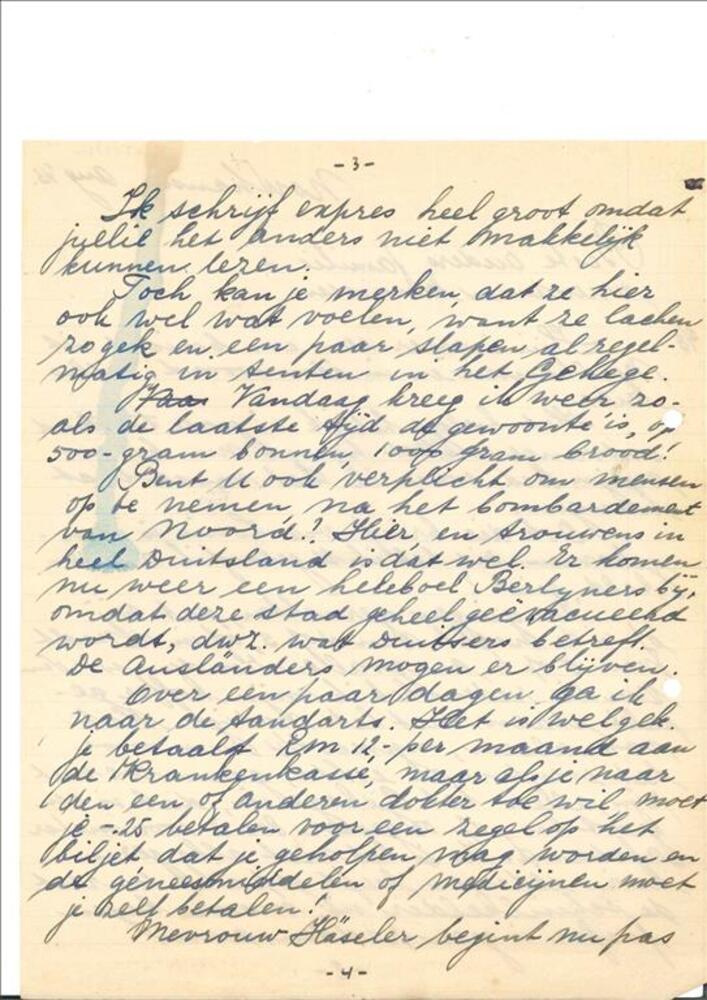 -3-
Ik schrijf expres heel groot omdat
jullie het anders niet makkelijk
kunnen lezen.
Toch kan je merken, dat ze hier
ook wel wat voelen, want ze lachen
zo gek en een paar slapen al regel-
matig in tenten in het Gehege.
Vandaag kreeg ik weer zo-
als de laatste tijd de gewoonte is, op
500-gram bonnen, 1000 gram brood!
Bent U ook verplicht om mensen
op te nemen, na het bombardement
van Noord? Hier, en trouwens in
heel Duitsland is dat wel. Er komen
nu weer een heleboel Berlyners bij,
omdat deze stad geheel geëvacueerd
wordt, dwz. wat Duitsers betreft.
De Ausländers mogen er blijven.
Over een paar dagen ga ik
naar de tandarts. Het is wel gek.
je betaalt Rm 12,- per maand aan
de Krankenkasse, maar als je naar
den een of anderen dokter toe wil, moet
je -.25 betalen voor een zegel op het
biljet dat je geholpen mag worden en
de geneesmiddelen of medicijnen moet
je zelf betalen!
Mevrouw Häseler begint nu pas
-4-